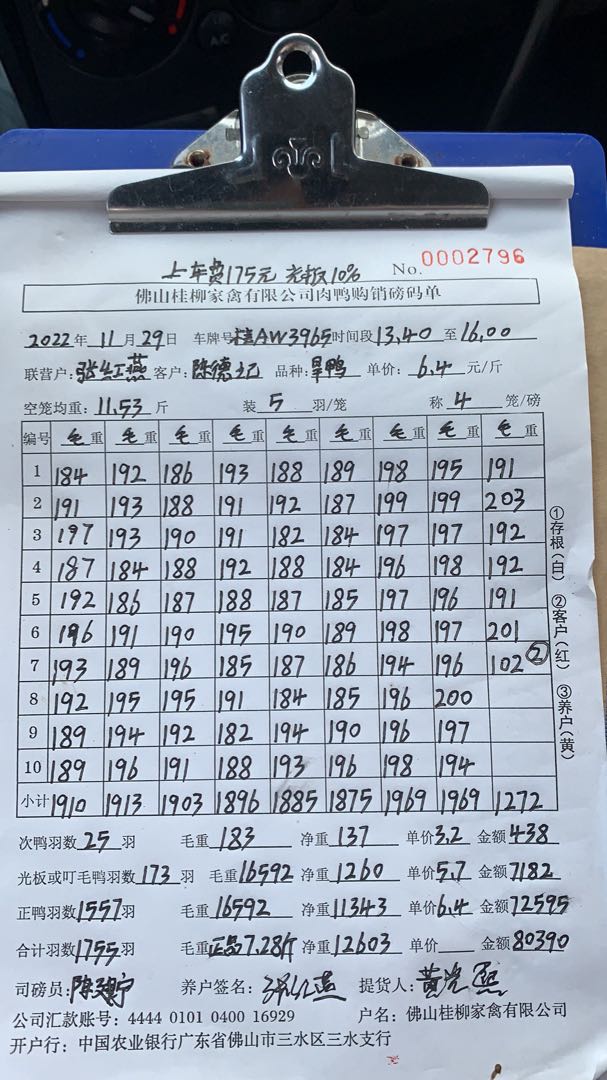 上车费175元 光板10%
No. 0002796
佛山桂柳家禽有限公司肉鸭购销磅码单
2022年11月29日 车牌号桂AW3965时间段13.40至16.00
联营户:张红燕 客户:陈德记 品种:旱鸭 单价:6.4元/斤
空笼均重:11.53斤 装5羽/笼 称4笼/磅
编号 毛重 毛重 毛重 毛重 毛重 毛重 毛重 毛重 毛重
1 184 192 186 193 188 189 198 195 191
2 191 193 188 191 192 187 199 199 203
3 197 193 190 191 182 184 197 197 192
4 187 184 188 192 188 184 196 198 192
5 192 186 187 188 187 185 197 196 191
6 196 191 190 195 190 189 198 197 201
7 193 189 196 185 187 186 194 196 102②
8 192 195 195 191 184 185 196 200
9 189 194 192 182 194 190 196 197
10 189 196 191 188 193 196 198 194
小计 1910 1913 1903 1896 1885 1875 1969 1969 1272
①存根(白) ②客户(红) ③养户(黄)
次鸭羽数25羽 毛重183 净重137 单价3.2 金额438
光板或叮毛鸭羽数173羽 毛重16592 净重1260 单价5.7 金额7182
正鸭羽数1557羽 毛重16592 净重11343 单价6.4 金额72595
合计羽数1755羽 毛重正品7.28斤 净重12603 单价 金额80390
司磅员: 养户签名:张红燕 提货人:
公司汇款账号:4444 0101 0400 16929 户名:佛山桂柳家禽有限公司
开户行:中国农业银行广东省佛山市三水区三水支行